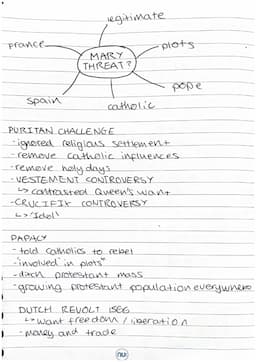 legitimate
France
plots
MARY
THREAT?
pope
Spain
catholic
PURITAN CHALLENGE
- ignored religious settlement
- remove catholic influences
- remove holy days
- VESTEMENT CONTROVERSY
↳ contrasted Queen's want
- CRUCIFIX CONTROVERSY
↳ 'Idol'
PAPACY
- told catholics to rebel
- involved in plots*
- ditch protestant mass
- growing protestant population everywhere
DUTCH REVOLT 1566
↳ want freedom / liberation
- money and trade
nu